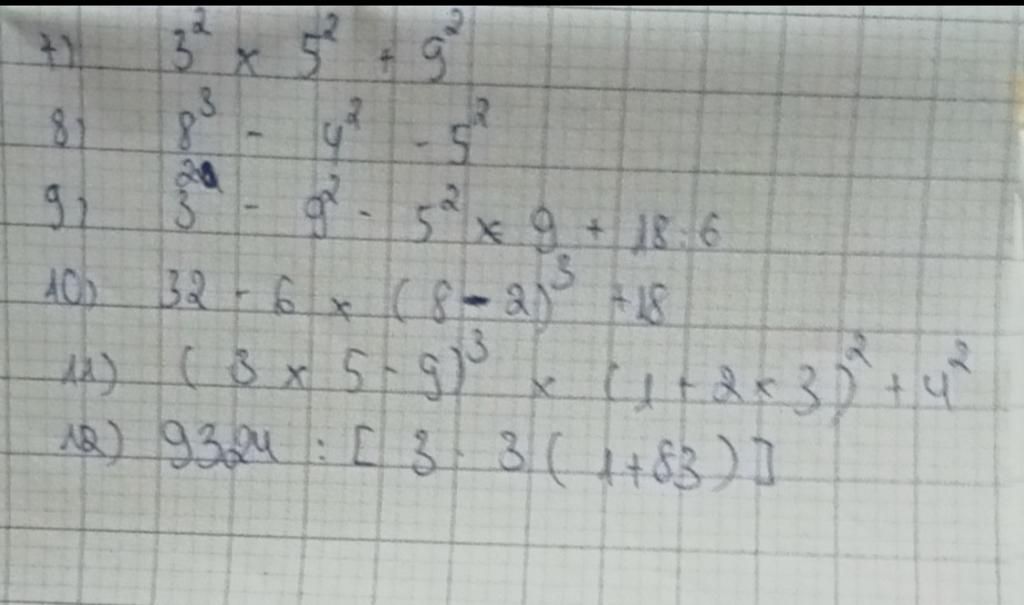 7) 3² × 5² + 9²
8) 8³ - 4² - 5²
9) 3² - 9² - 5² × 9 + 18 : 6
10) 32 - 6 × (8 - 2)³ + 18
11) (3 × 5 - 9)³ × (1 + 2 × 3)² + 4²
12) 9324 : [3 · 3 (1 + 83)]